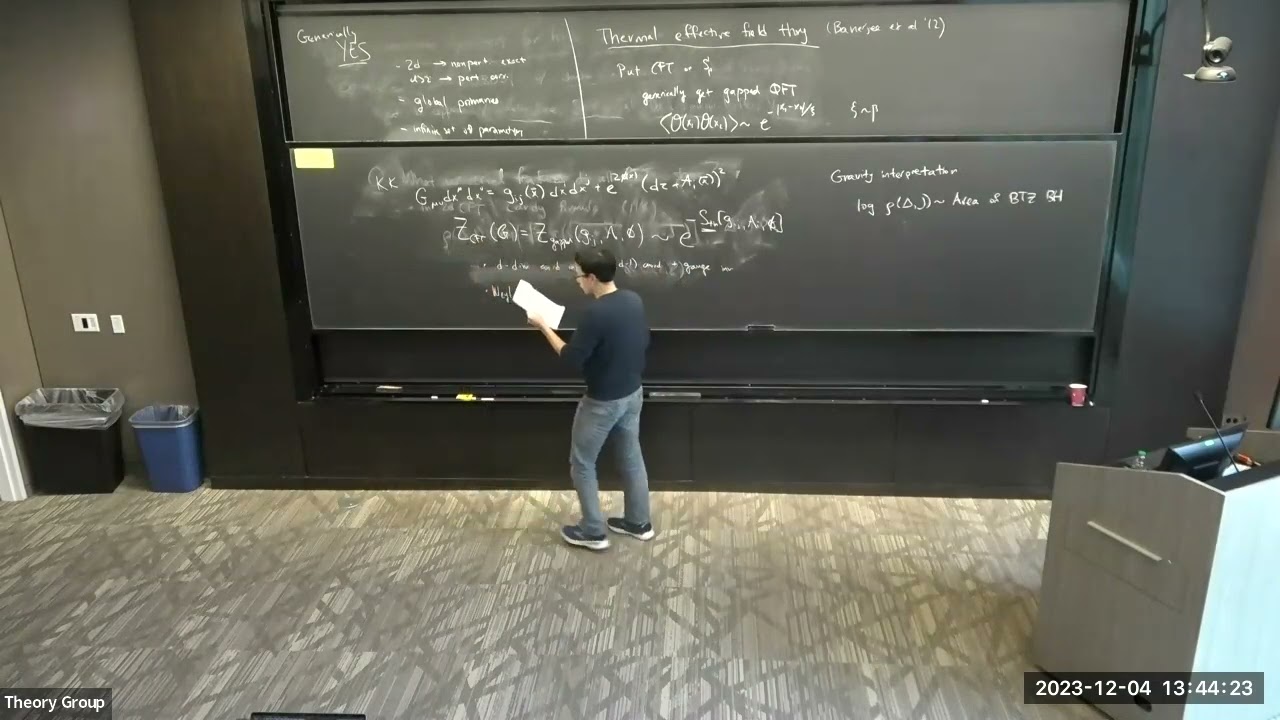 Generally
YES
· 2d → nonpert exact
d>2 → pert corr.
· global primaries
· infinite set of parameters
Thermal effective field thry (Banerjee et al '12)
Put CFT on S¹_β
generically get gapped QFT
⟨O(x₁)O(x₂)⟩ ~ e^{-|x₁-x₂|/ξ} ξ~β
KK
G_{μν}dx^μdx^ν = g_{ij}(x⃗) dx^i dx^j + e^{2φ(x⃗)} (dτ + A_i(x⃗))²
Z_{CFT}(G) = Z_{gapped}(g_{ij}, A, φ) ~ e^{S_{th}[g_{ij}, A_i, φ]}
gauge inv
Gravity interpretation
log ρ(Δ,J) ~ Area of BTZ BH
Theory Group
2023-12-04 13:44:23